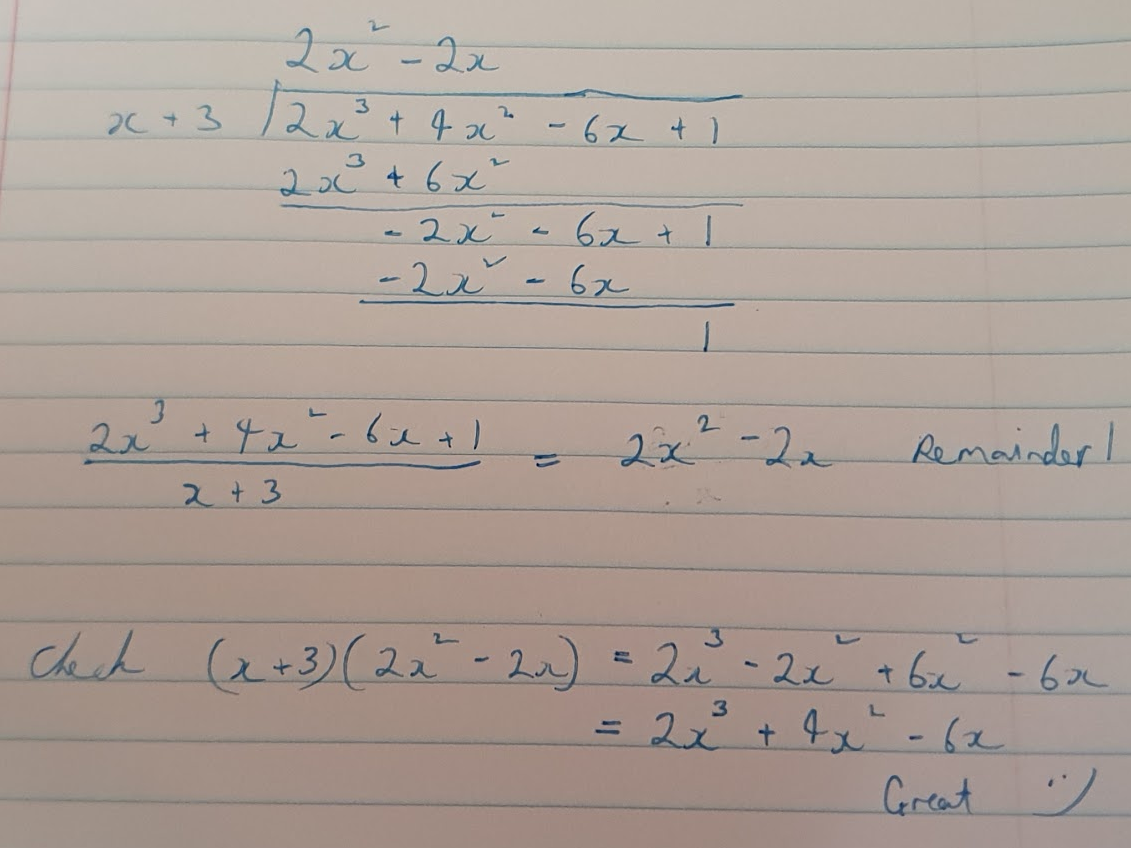 2x² - 2x
x + 3 2x³ + 4x² - 6x + 1
2x³ + 6x²
- 2x² - 6x + 1
- 2x² - 6x
1
2x³ + 4x² - 6x + 1
x + 3
= 2x² - 2x Remainder 1
Check (x+3)(2x² - 2x) = 2x³ - 2x² + 6x² - 6x
= 2x³ + 4x² - 6x
Great :)